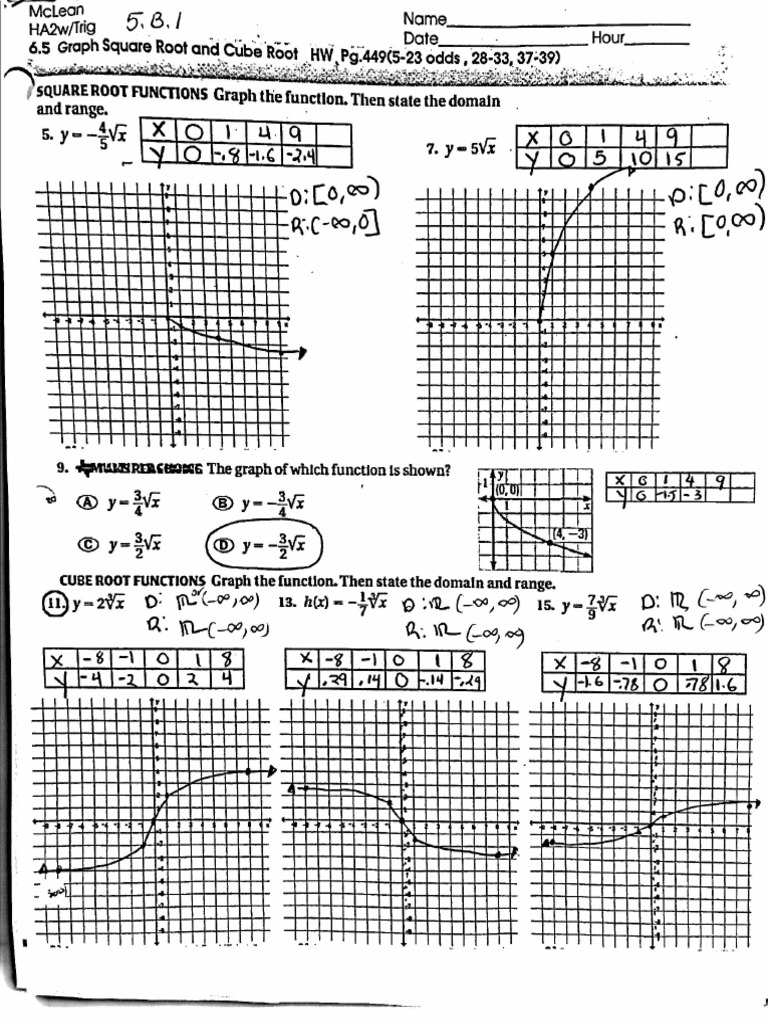 McLean
HA2w/Trig
5.B.1
Name
Date Hour
6.5 Graph Square Root and Cube Root HW Pg.449(5-23 odds , 28-33, 37-39)
SQUARE ROOT FUNCTIONS Graph the function. Then state the domain
and range.
5. y = -4/5√x
X 0 1 4 9
Y 0 -.8 -1.6 -2.4
D: [0,∞)
R: (-∞,0]
7. y = 5√x
X 0 1 4 9
Y 0 5 10 15
D: [0,∞)
R: [0,∞)
9. The graph of which function is shown?
A y = 3/4√x B y = -3/4√x
C y = 3/2√x D y = -3/2√x
1 y
(0, 0)
1 x
(4, -3)
X 0 1 4 9
Y 0 -1.5 -3
CUBE ROOT FUNCTIONS Graph the function. Then state the domain and range.
11. y = 2∛x D: ℝ or (-∞,∞)
R: ℝ (-∞,∞)
13. h(x) = -1/7∛x D: ℝ (-∞,∞)
R: ℝ (-∞,∞)
15. y = 7/9∛x D: ℝ (-∞,∞)
R: ℝ (-∞,∞)
X -8 -1 0 1 8
Y -4 -2 0 2 4
X -8 -1 0 1 8
Y .29 .14 0 -.14 -.29
X -8 -1 0 1 8
Y -1.6 -.78 0 .78 1.6